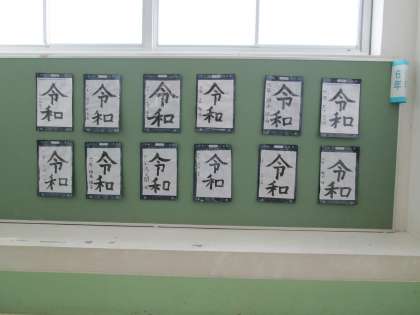 令和
令和
令和
令和
令和
令和
6年
令和
令和
令和
令和
令和
令和